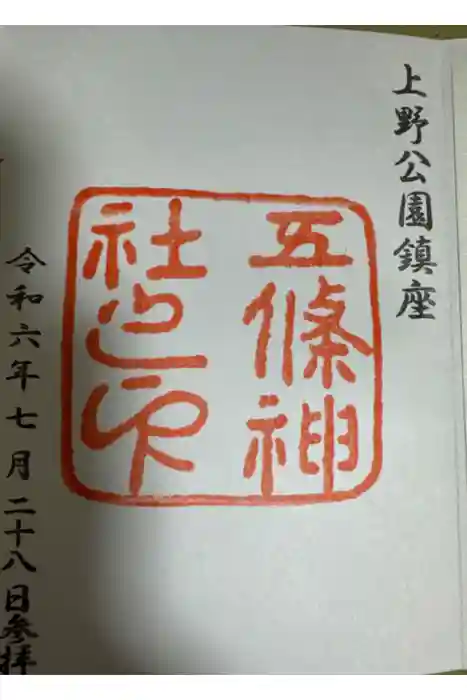 上野公園鎮座
五條神
社之印
令和六年七月二十八日参拝